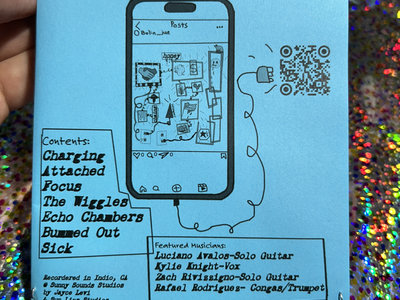 Posts
Contents:
Charging
Attached
Focus
The Wiggles
Echo Chambers
Bummed Out
Sick
Recordered in Indio, CA
@ Sunny Sounds Studios
by Jayce Levi
Featured Musicians:
Luciano Avalos-Solo Guitar
Kylie Knight-Vox
Zach Rivizzigno-Solo Guitar
Rafael Rodriguez- Congas/Trumpet